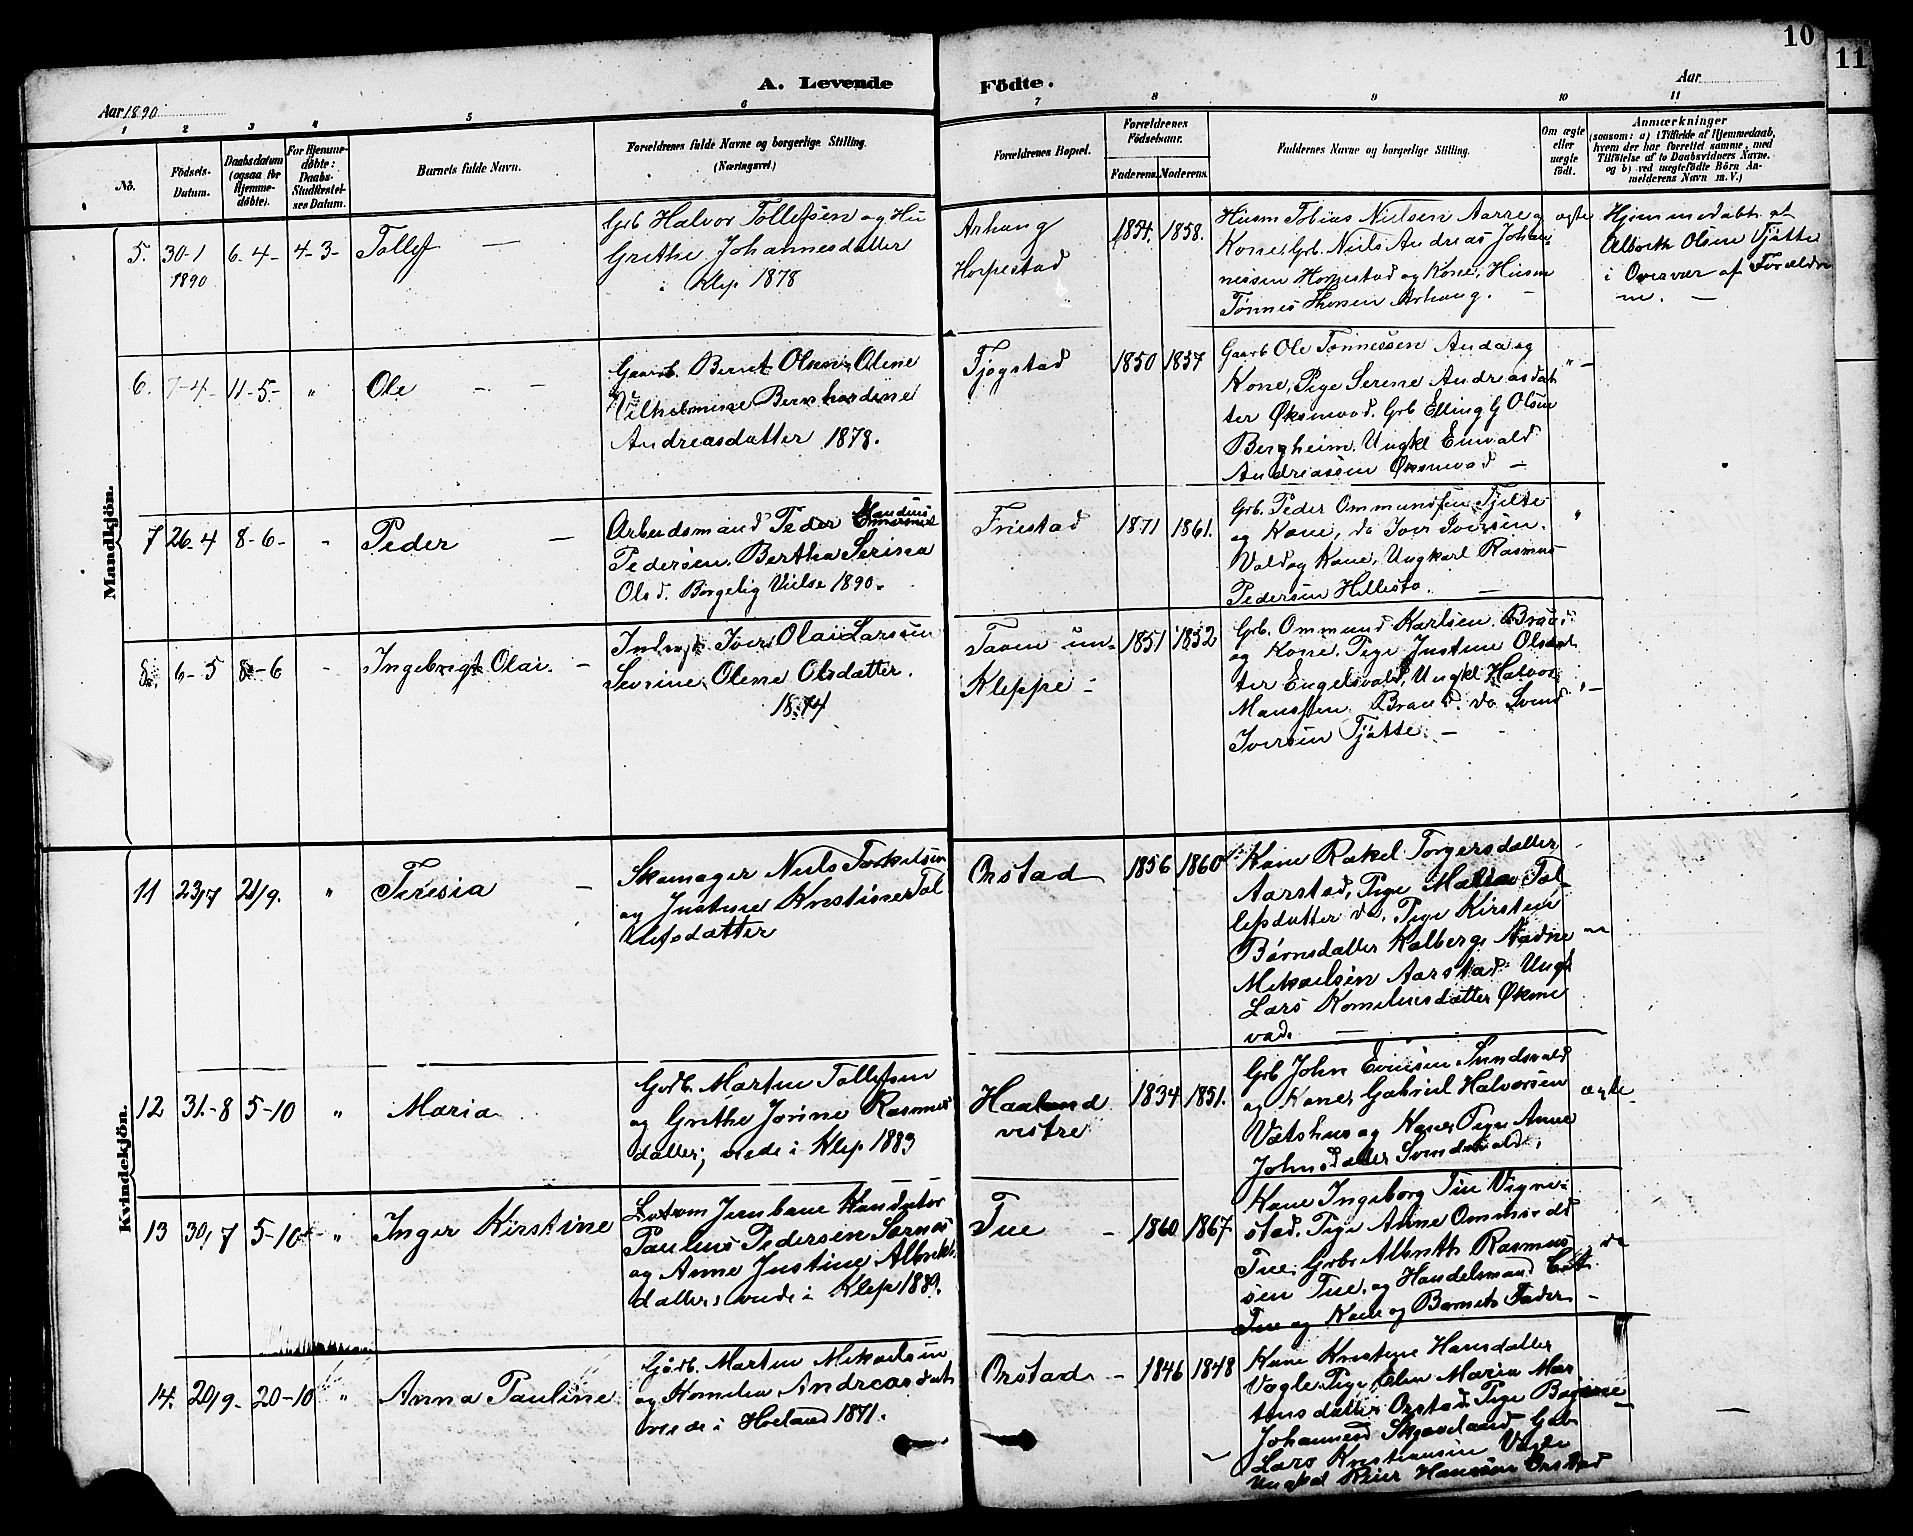 10
11
A. Levende
Födte.
Aar 1890
Aar
1
2
3
4
5
6
7
8
9
10
11
No.
Födsels-
Datum.
Daabsdatum
(ogsaa for
Hjemme-
døbte).
For Hjemme-
døbte:
Daabs-
Stadfæstel-
ses Datum.
Barnets fulde Navn.
Forældrenes fulde Navne og borgerlige Stilling.
(Næringsvei.)
Forældrenes Bopæl.
Forældrenes
Födselsaar.
Faderens.
Moderens.
Faddernes Navne og borgerlige Stilling.
Om ægte
eller
uægte
födt.
Anmærkninger
(saasom: a) i Tilfælde af Hjemmedaab,
hvem der har forrettet samme, med
Tilföielse af to Daabsvidners Navne,
og b) ved uægtefödte Börn An-
melderens Navn m. V.)
Mandkjön.
5. 30-1
1890
6-4-
4-3-
Tollef —
Grb Halvor Tollefsen og Hu
Grethe Johannesdatter
i Klep 1878
Arhaug
Horpestad
1854. 1858.
Husm Tobias Nielsen Aarre og
Kone, Grb. Niels Andreas Johan-
nessen Horpestad og Kone, Husm
Tønnes Thorsen Arhaug. —
ægte
Hjemmedøbt at
Albreth Olsen Tjøtte
i Overvær af Forældre
ne. —
6. 7-4- 11-5- "
Ole - -
Gaarb. Bernt Olsen, Olene
Vilhelmine Bernhardine
Andreasdatter 1878.
Tjøgstad
1850 1857
Gaarb Ole Tønnessen Anda og
Kone, Pige Serine Andreasdat
ter Øksnevad. Grb Elling G Olsen
Bergheim. Ungkl Enevald
Andreassen Øksnevad —
" -
7 26-4 8-6- -
Peder —
Arbeidsmand Peder Mandius
Pedersen, Bertha Serina
Olsd. Borgelig Vielse 1890.
Friestad
1871 1861.
Grb. Peder Ommundsen Tjelte
og Kone, do Iver Iversen
Vold og Kone, Ungkarl Rasmus
Pedersen Hillesto. —
"
8. 6-5 8-6 -
Ingebrigt Olai. -
Inderst Iver Olai Larssen
Serine Olene Olsdatter.
1874
Kleppe -
1851 1852
Grb. Ommund Karlsen Braud
og Kone. Pige Justine Olsdat
ter Engelsvold, Ungkl Halvor
Braud. do Svend
Iversen Tjøtte. —
" -
Kvindekjön.
11 23/7 21/9. "
Teresia —
Skomager Niels Torkelsen
og Justine Kristine Tol
lefsdatter
Orstad
1856 1860
Kone Rakel Torgersdatter
Aarstad, Pige Maria Tol-
lefsdatter do, Pige Kirsten
Børnsdatter Kalberg, Aadne
Mikaelsen Aarstad Ungk
Lars Korneliusdatter Øksne
vad. —
12 31-8 5-10 "
Maria
Grdb. Martin Tollefsen
og Grethe Jorine Rasmus
datter, viede i Klep 1883
Haaland
vestre
1834 1851.
Grb John Evensen Sundsvald
og Kone, Gabriel Halvorsen
Vatshus og Kone, Pige Anne
Johnsdatter Svindsvald.
ægte
13 30/7 5-10 - "
Inger Kirstine
Lokom Jernbane Konduktør
Paulus Pedersen Sørnes
og Anne Justine Albrikts
datter, viede i Klep 1889.
Tue -
1860 1867
Kone Ingeborg Tue Vigre-
stad, Pige Anne Ommundsd
Tue, Grb Albreth Rasmus
sen Tue, og Handelsmand
Tue og Kone og Barnets Fader -
do
14. 20/9. 20-10 "
Anna Pauline
Grdb. Martin Mikaelsen
og Kornelia Andreasdat
viede i Høiland 1871.
Orstad -
1846 1848
Kone Kristene Hansdatter
Vagle, Pige Elen Maria Mar
tensdatter Orstad, Pige
Johannesd Skjæveland, Grb
Lars Kristiansen Vagle
Ungkal Reier Hanssen Orstad